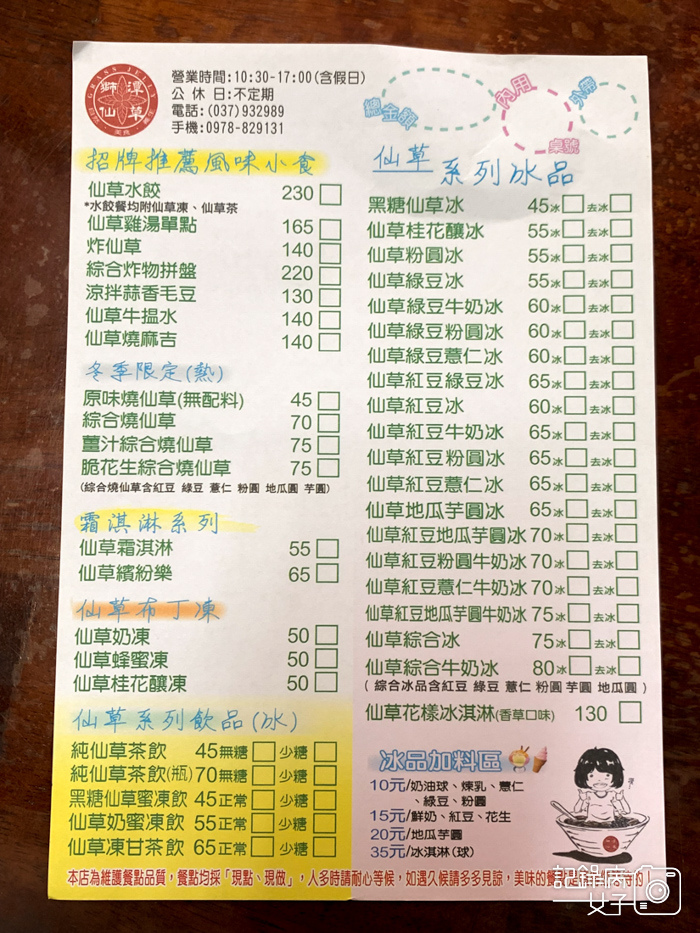 GRASS JELLY
獅潭
仙草
營業時間:10:30-17:00(含假日)
公 休 日:不定期
電話:(037)932989
手機:0978-829131
總金額
內用
桌號
外帶
招牌推薦風味小食
仙草水餃 230
*水餃餐均附仙草凍、仙草茶
仙草雞湯單點 165
炸仙草 140
綜合炸物拼盤 220
涼拌蒜香毛豆 130
仙草牛搵水 140
仙草燒麻吉 140
冬季限定(熱)
原味燒仙草(無配料) 45
綜合燒仙草 70
薑汁綜合燒仙草 75
脆花生綜合燒仙草 75
(綜合燒仙草含紅豆 綠豆 薏仁 粉圓 地瓜圓 芋圓)
霜淇淋系列
仙草霜淇淋 55
仙草繽紛樂 65
仙草布丁凍
仙草奶凍 50
仙草蜂蜜凍 50
仙草桂花釀凍 50
仙草系列飲品(冰)
純仙草茶飲 45 無糖 少糖
純仙草茶飲(瓶) 70 無糖 少糖
黑糖仙草蜜凍飲 45 正常 少糖
仙草奶蜜凍飲 55 正常 少糖
仙草凍甘茶飲 65 正常 少糖
仙草系列冰品
黑糖仙草冰 45 冰 去冰
仙草桂花釀冰 55 冰 去冰
仙草粉圓冰 55 冰 去冰
仙草綠豆冰 55 冰 去冰
仙草綠豆牛奶冰 60 冰 去冰
仙草綠豆粉圓冰 60 冰 去冰
仙草綠豆薏仁冰 60 冰 去冰
仙草紅豆綠豆冰 65 冰 去冰
仙草紅豆冰 60 冰 去冰
仙草紅豆牛奶冰 65 冰 去冰
仙草紅豆粉圓冰 65 冰 去冰
仙草紅豆薏仁冰 65 冰 去冰
仙草地瓜芋圓冰 65 冰 去冰
仙草紅豆地瓜芋圓冰 70 冰 去冰
仙草紅豆粉圓牛奶冰 70 冰 去冰
仙草紅豆薏仁牛奶冰 70 冰 去冰
仙草紅豆地瓜芋圓牛奶冰 75 冰 去冰
仙草綜合冰 75 冰 去冰
仙草綜合牛奶冰 80 冰 去冰
( 綜合冰品含紅豆 綠豆 薏仁 粉圓 芋圓 地瓜圓 )
仙草花樣冰淇淋(香草口味) 130
冰品加料區
10元/奶油球、煉乳、薏仁
、綠豆、粉圓
15元/鮮奶、紅豆、花生
20元/地瓜芋圓
35元/冰淇淋(球)
本店為維護餐點品質，餐點均採「現點、現做」，人多時請耐心等候，如遇久候請多多見諒，美味的餐點是